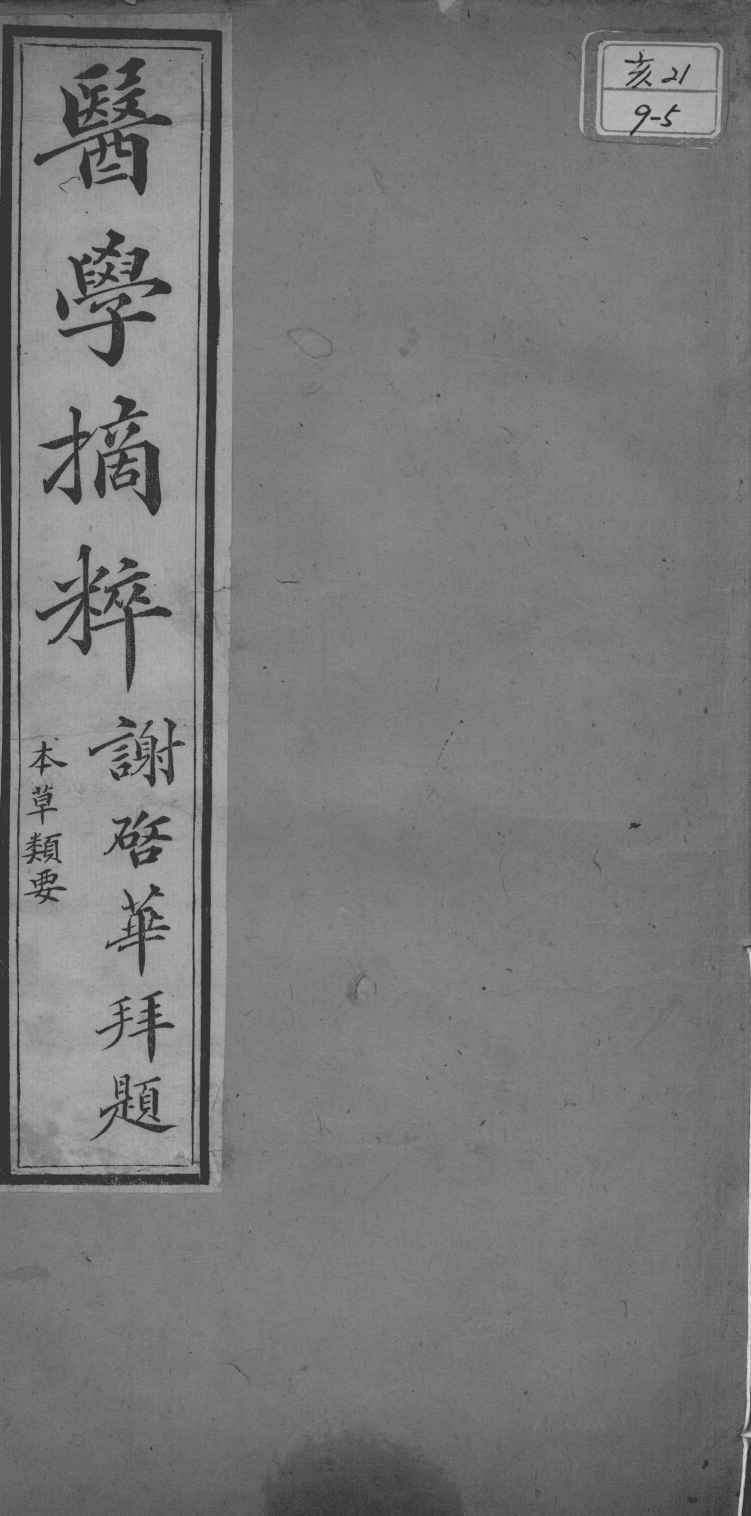 亥21
9-5
醫學摘粹
謝啓華拜題
本草類要